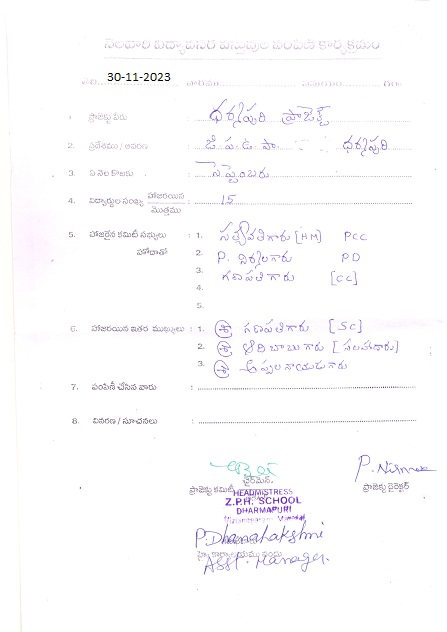 నెలవారి విద్యావసర వస్తువుల పంపిణి కార్యక్రమం
తేది 30-11-2023 వారము సమయం గం॥
1. ప్రాజెక్టు పేరు : ధర్మపురి ప్రాజెక్ట్
2. ప్రదేశము / ఆవరణ : జి.ప.ఉ.పా. ధర్మపురి
3. ఏ నెల కొఱకు : సెప్టెంబరు
4. విద్యార్థుల సంఖ్య హాజరయిన / మొత్తము : 15
5. హాజరైన కమిటీ సభ్యులు : 1. సరస్వతిగారు [HM] PCC
హోదాతో 2. P. నిర్మలగారు PD
3. గణపతిగారు [CC]
4.
5.
6. హాజరయిన ఇతర ముఖ్యులు : 1. శ్రీ గణపతిగారు [SC]
2. శ్రీ ఆదిబాబుగారు [సలహాదారు]
3. శ్రీ అప్పలనాయుడుగారు
7. పంపిణీ చేసిన వారు :
8. వివరణ / సూచనలు :
ఛైర్మెన్. P. Nirmala
ప్రాజెక్టు కమిటీ ప్రాజెక్టు డైరెక్టర్
HEADMISTRESS
Z.P.H. SCHOOL
DHARMAPURI
Vizianagaram
P. Dhanalakshmi
Asst. Manager.